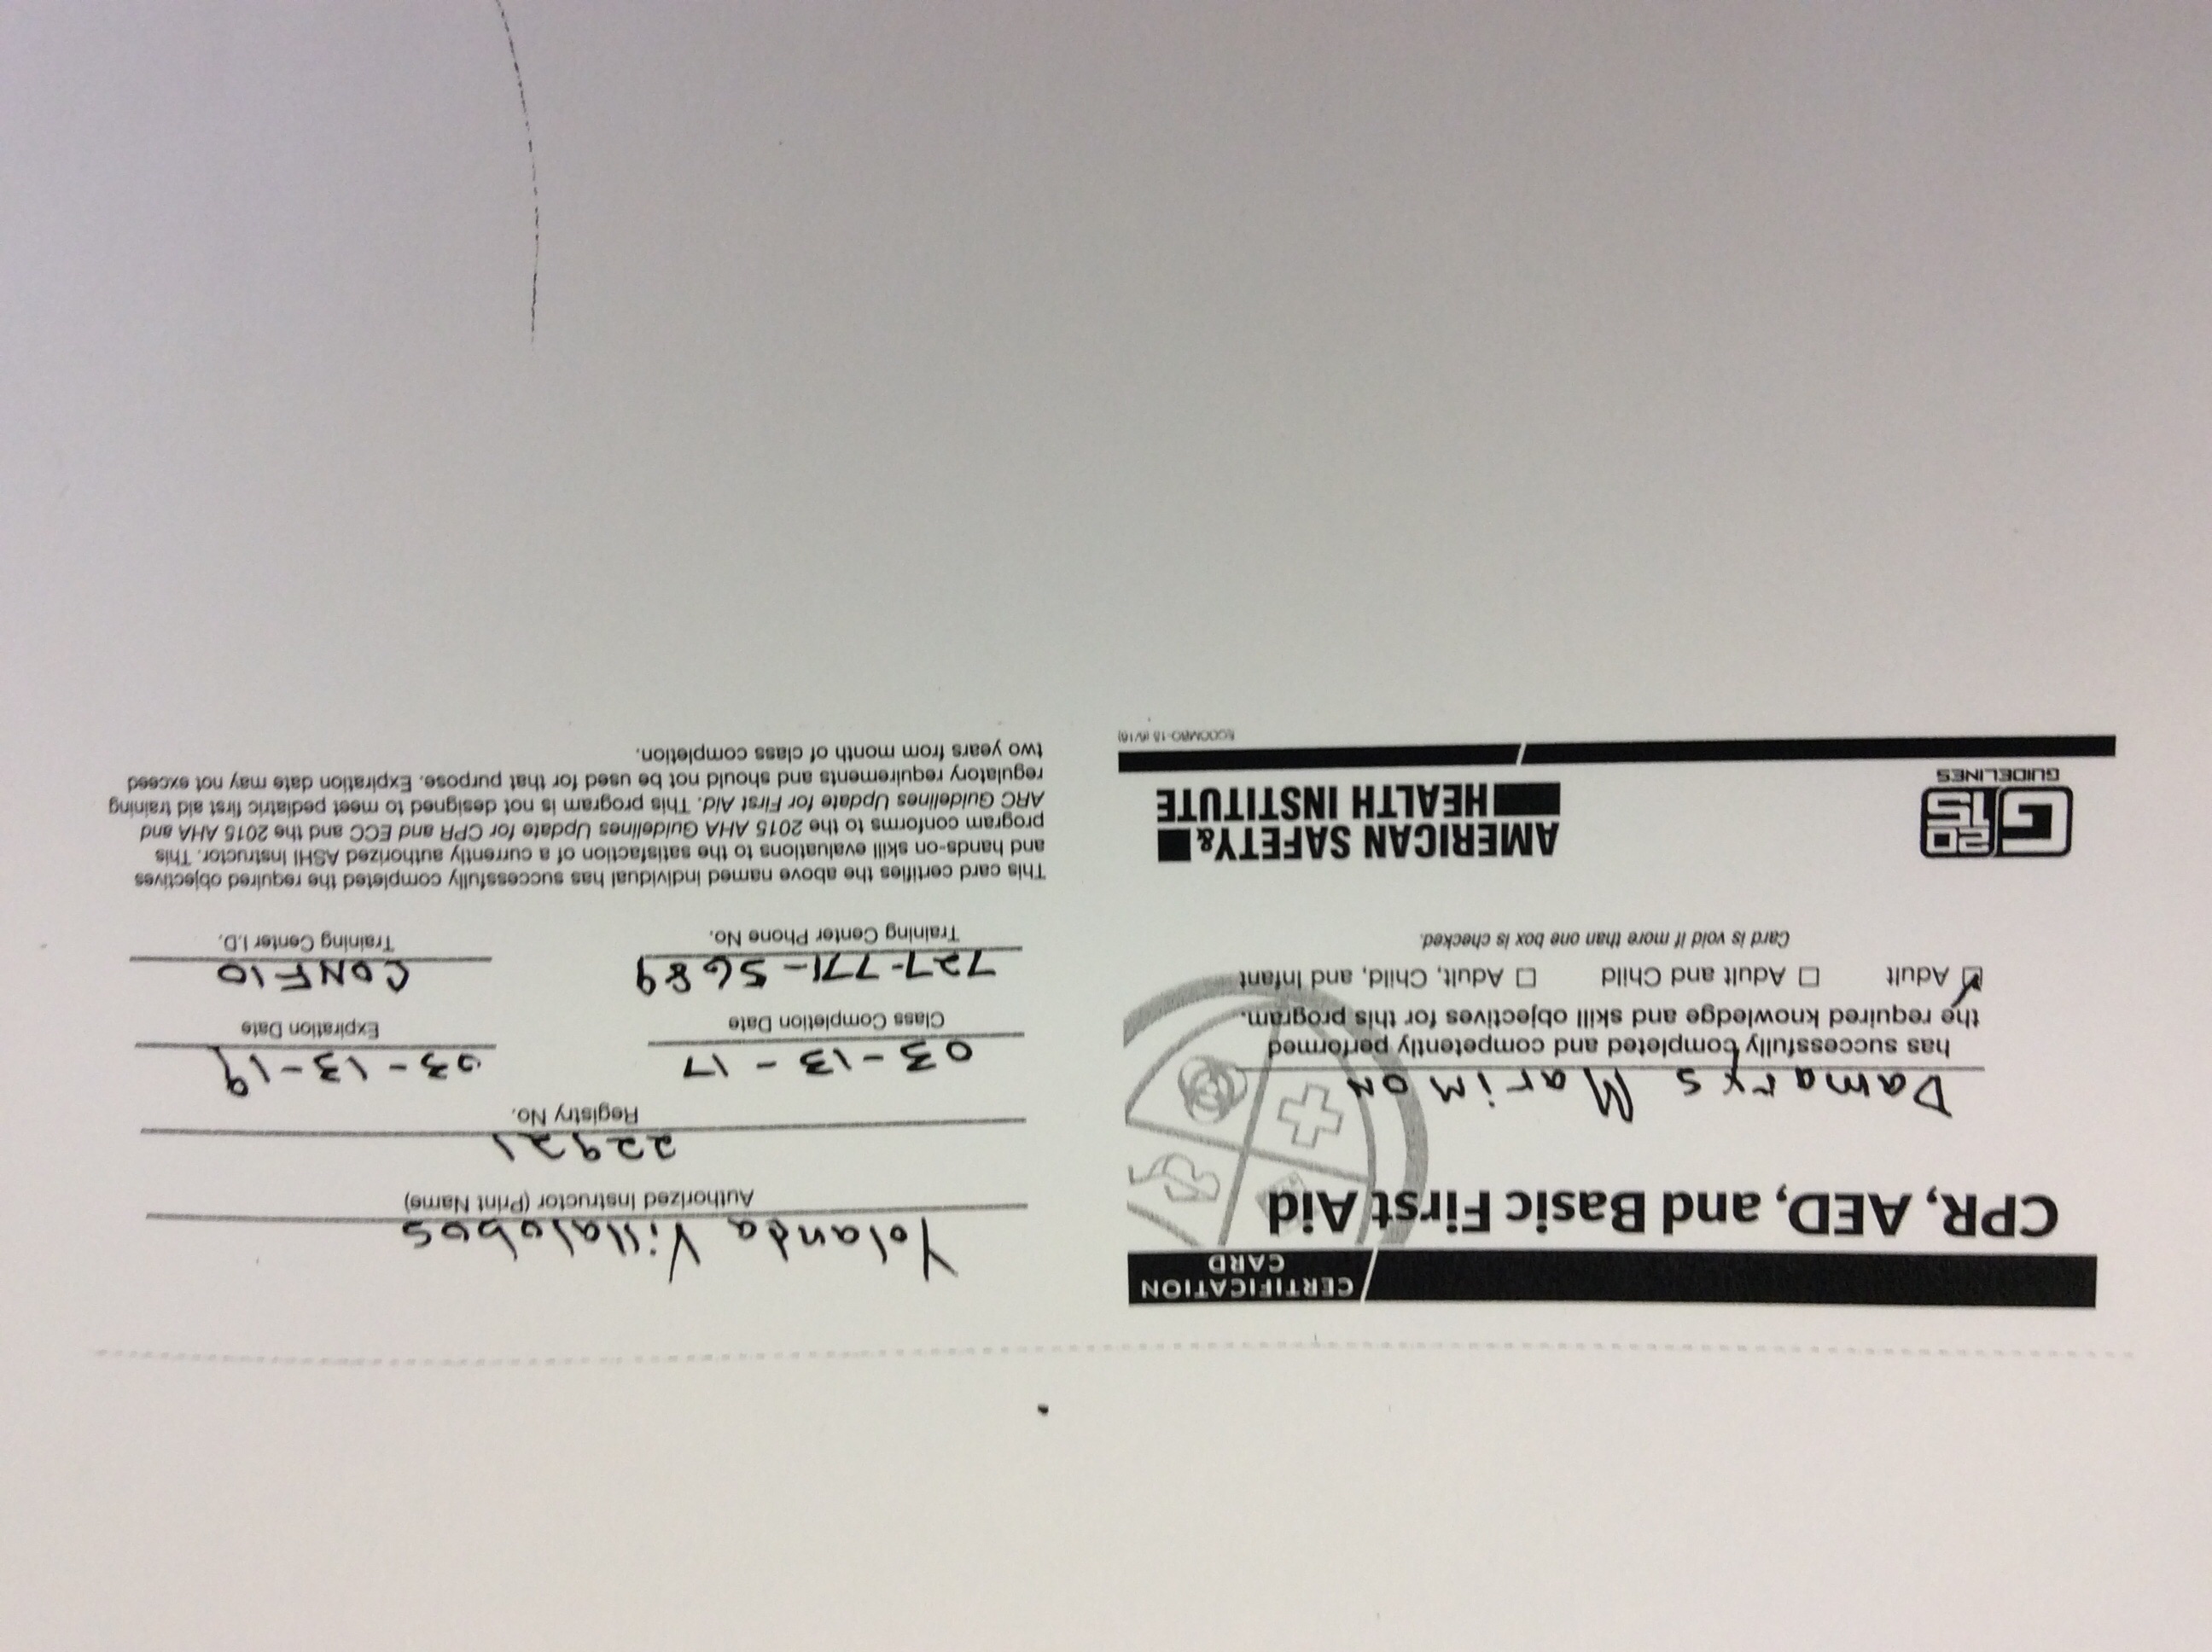 CERTIFICATION
CARD
CPR, AED, and Basic First Aid
Damarys Marimon
has successfully completed and competently performed
the required knowledge and skill objectives for this program.
☑ Adult ☐ Adult and Child ☐ Adult, Child, and Infant
Card is void if more than one box is checked.
G2015
GUIDELINES
AMERICAN SAFETY &
HEALTH INSTITUTE
Yolanda Villalobos
Authorized Instructor (Print Name)
22921
Registry No.
03-13-17 03-13-19
Class Completion Date Expiration Date
727-771-5689 CONF10
Training Center Phone No. Training Center I.D.
This card certifies the above named individual has successfully completed the required objectives
and hands-on skill evaluations to the satisfaction of a currently authorized ASHI Instructor. This
program conforms to the 2015 AHA Guidelines Update for CPR and ECC and the 2015 AHA and
ARC Guidelines Update for First Aid. This program is not designed to meet pediatric first aid training
regulatory requirements and should not be used for that purpose. Expiration date may not exceed
two years from month of class completion.